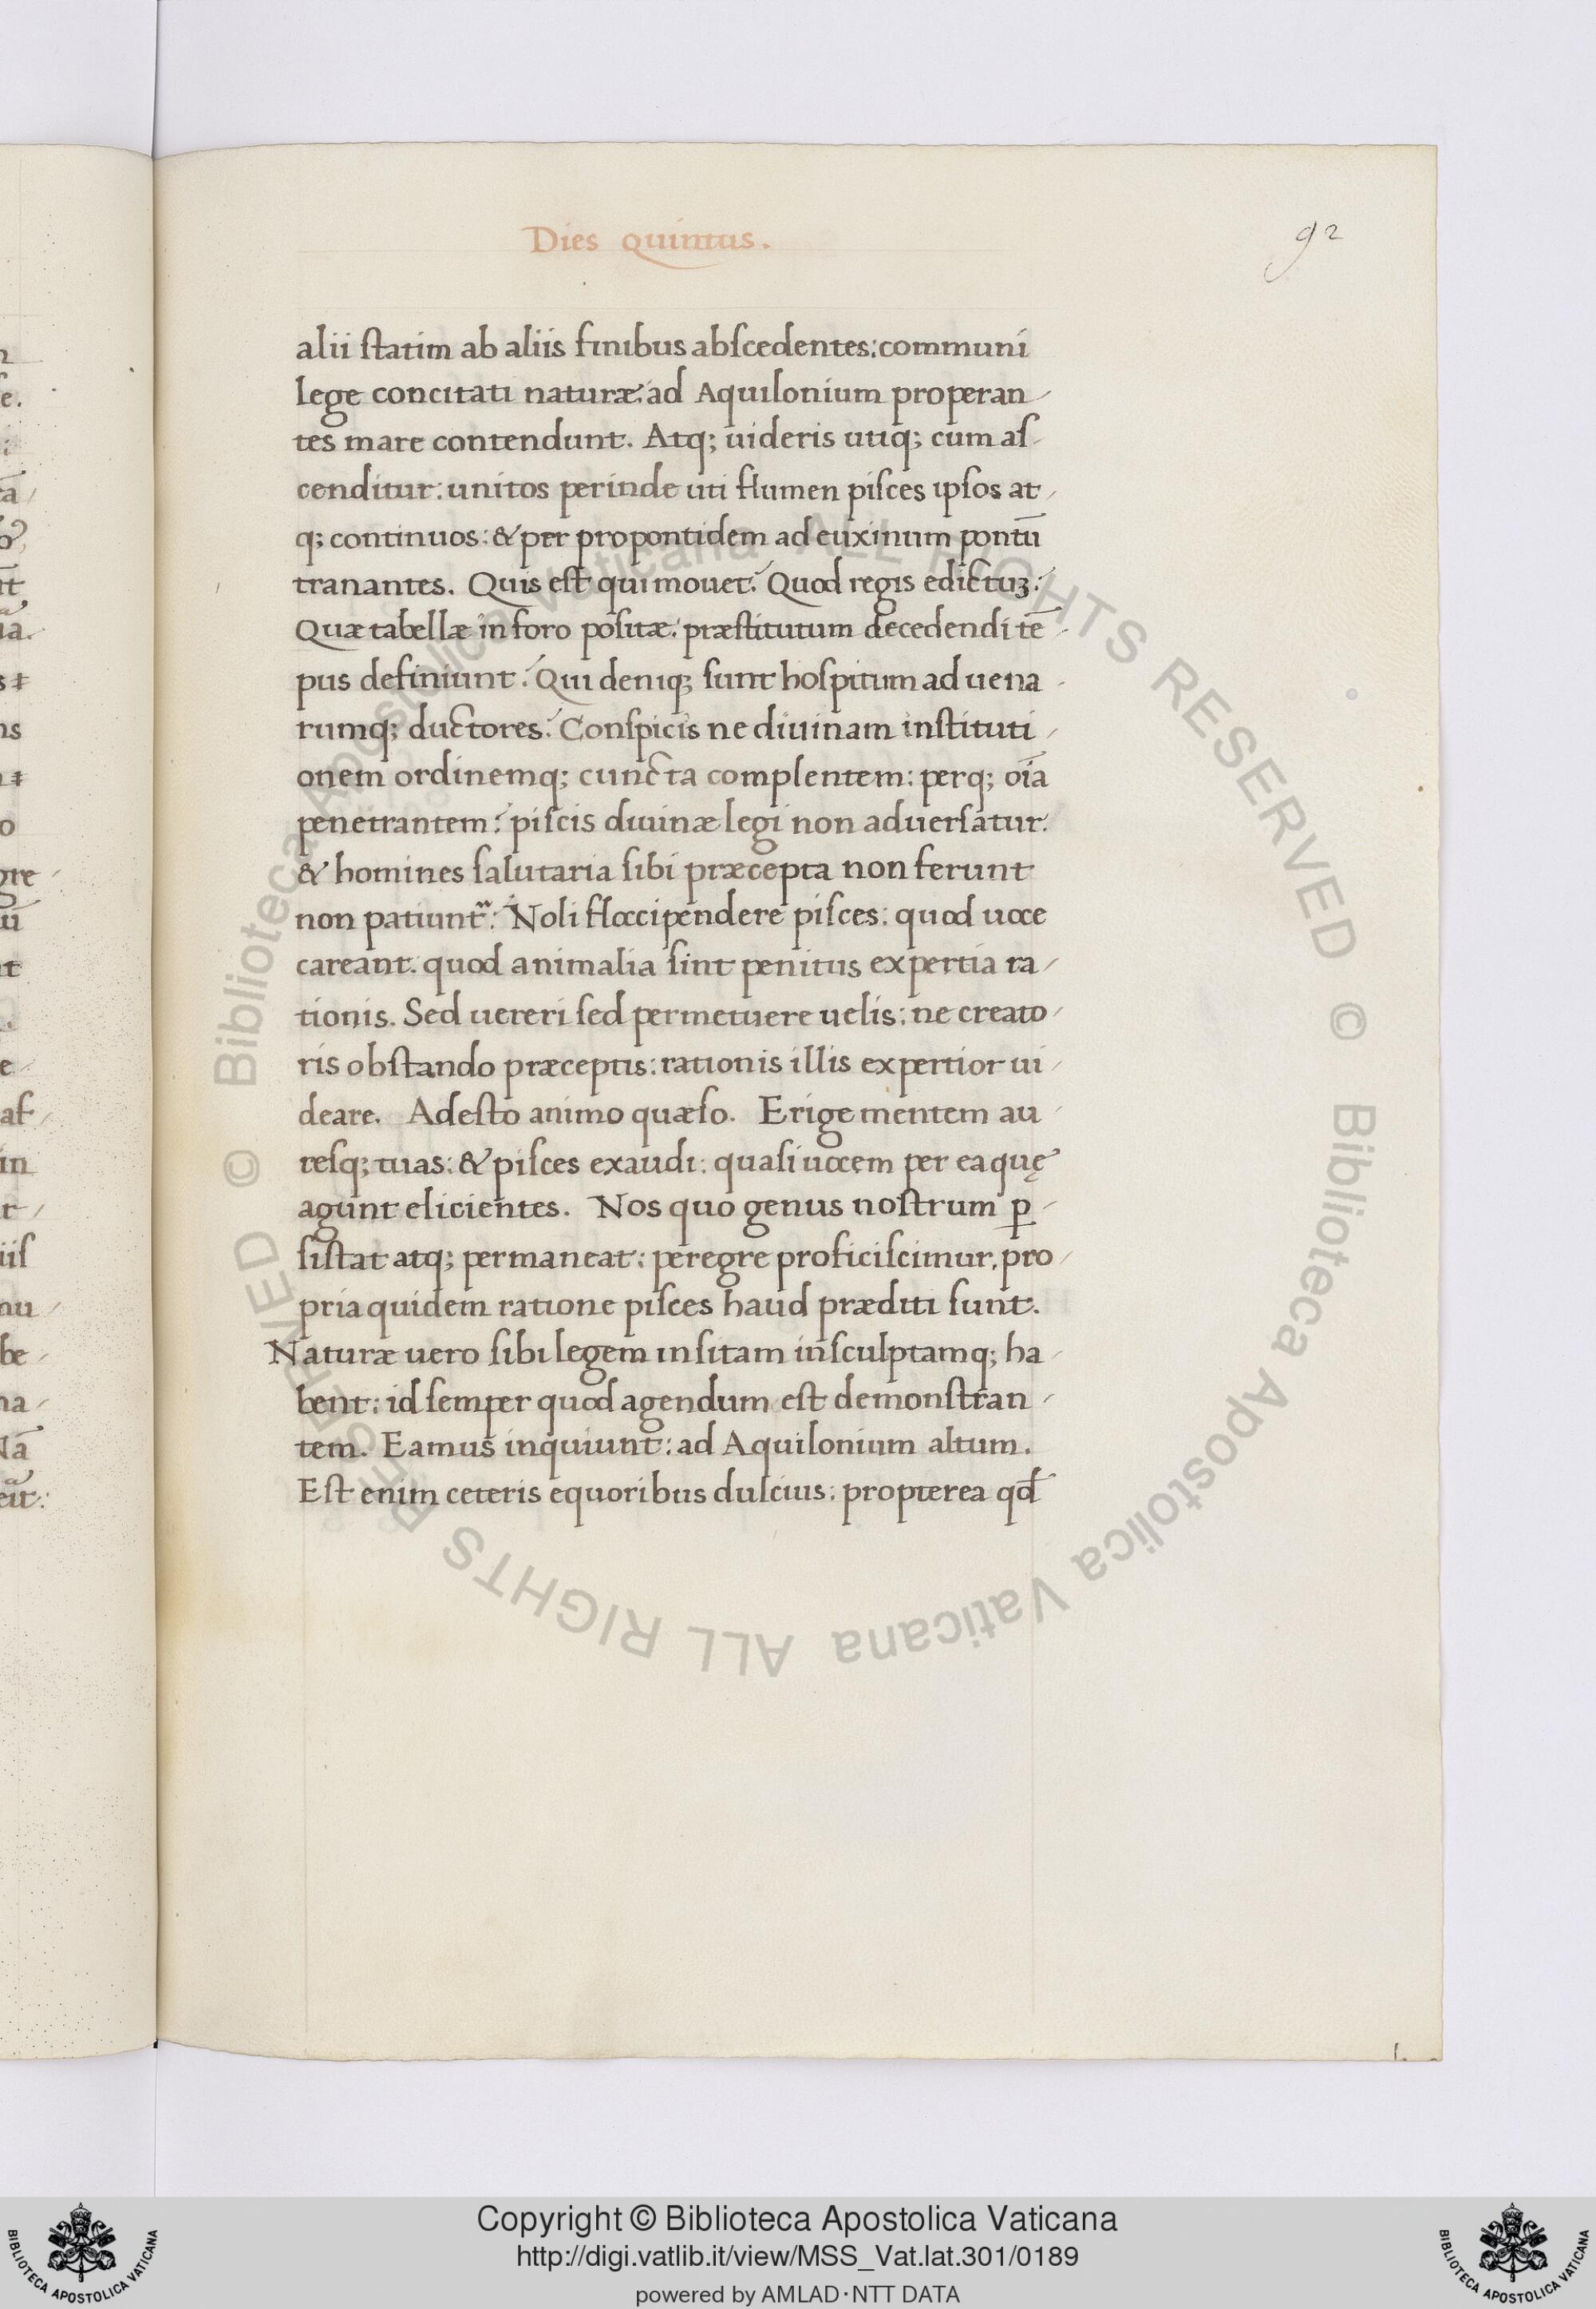 Dies quintus.
92
alii ſtatim ab aliis finibus abſcedentes: communi
lege concitati naturæ: ad Aquilonium properan-
tes mare contendunt. Atq; uideris utiq; cum aſ-
cenditur: unitos perinde uti flumen piſces ipſos at-
q; continuos: & per propontidem ad euxinum pontū
tranantes. Quis eſt qui mouet? Quod regis edictuꝫ?
Quæ tabellæ in foro poſitæ? præſtitutum decedendi tē-
pus definiunt? Qui deniq; ſunt hoſpitum aduena-
rumq; ductores? Conſpicis ne diuinam inſtituti-
onem ordinemq; cuncta complentem: perq; oīa
penetrantem? piſcis diuinæ legi non aduerſatur:
& homines ſalutaria ſibi præcepta non ferunt
non patiunt᷑: Noli floccipendere piſces: quod uoce
careant. quod animalia ſint penitus expertia ra-
tionis. Sed uereri ſed permetuere uelis: ne creato-
ris obſtando præceptis: rationis illis expertior ui-
deare. Adeſto animo quæſo. Erige mentem au-
reſq; tuas: & piſces exaudi: quaſi uocem per ea quę
agunt elicientes. Nos quo genus noſtrum ꝑ-
ſiſtat atq; permaneat: peregre proficiſcimur. pro-
pria quidem ratione piſces haud præditi ſunt.
Naturæ uero ſibi legem inſitam inſculptamq; ha-
bent: id ſemper quod agendum eſt demonſtran-
tem. Eamus inquiunt: ad Aquilonium altum.
Eſt enim ceteris equoribus dulcius: propterea qđ
Copyright © Biblioteca Apostolica Vaticana
http://digi.vatlib.it/view/MSS_Vat.lat.301/0189
powered by AMLAD·NTT DATA
BIBLIOTECA APOSTOLICA VATICANA
BIBLIOTECA APOSTOLICA VATICANA
© Biblioteca Apostolica Vaticana ALL RIGHTS RESERVED
© Biblioteca Apostolica Vaticana ALL RIGHTS RESERVED